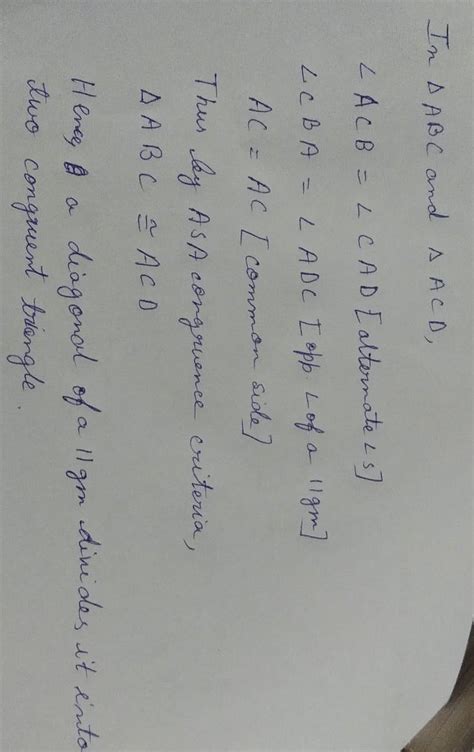 In ΔABC and ΔACD,
∠ACB = ∠CAD [alternate ∠s]
∠CBA = ∠ADC [opp ∠ of a ||gm]
AC = AC [common side]
Thus by ASA congruence criteria,
ΔABC ≅ ACD
Hence, a diagonal of a ||gm divides it into
two congruent triangle.